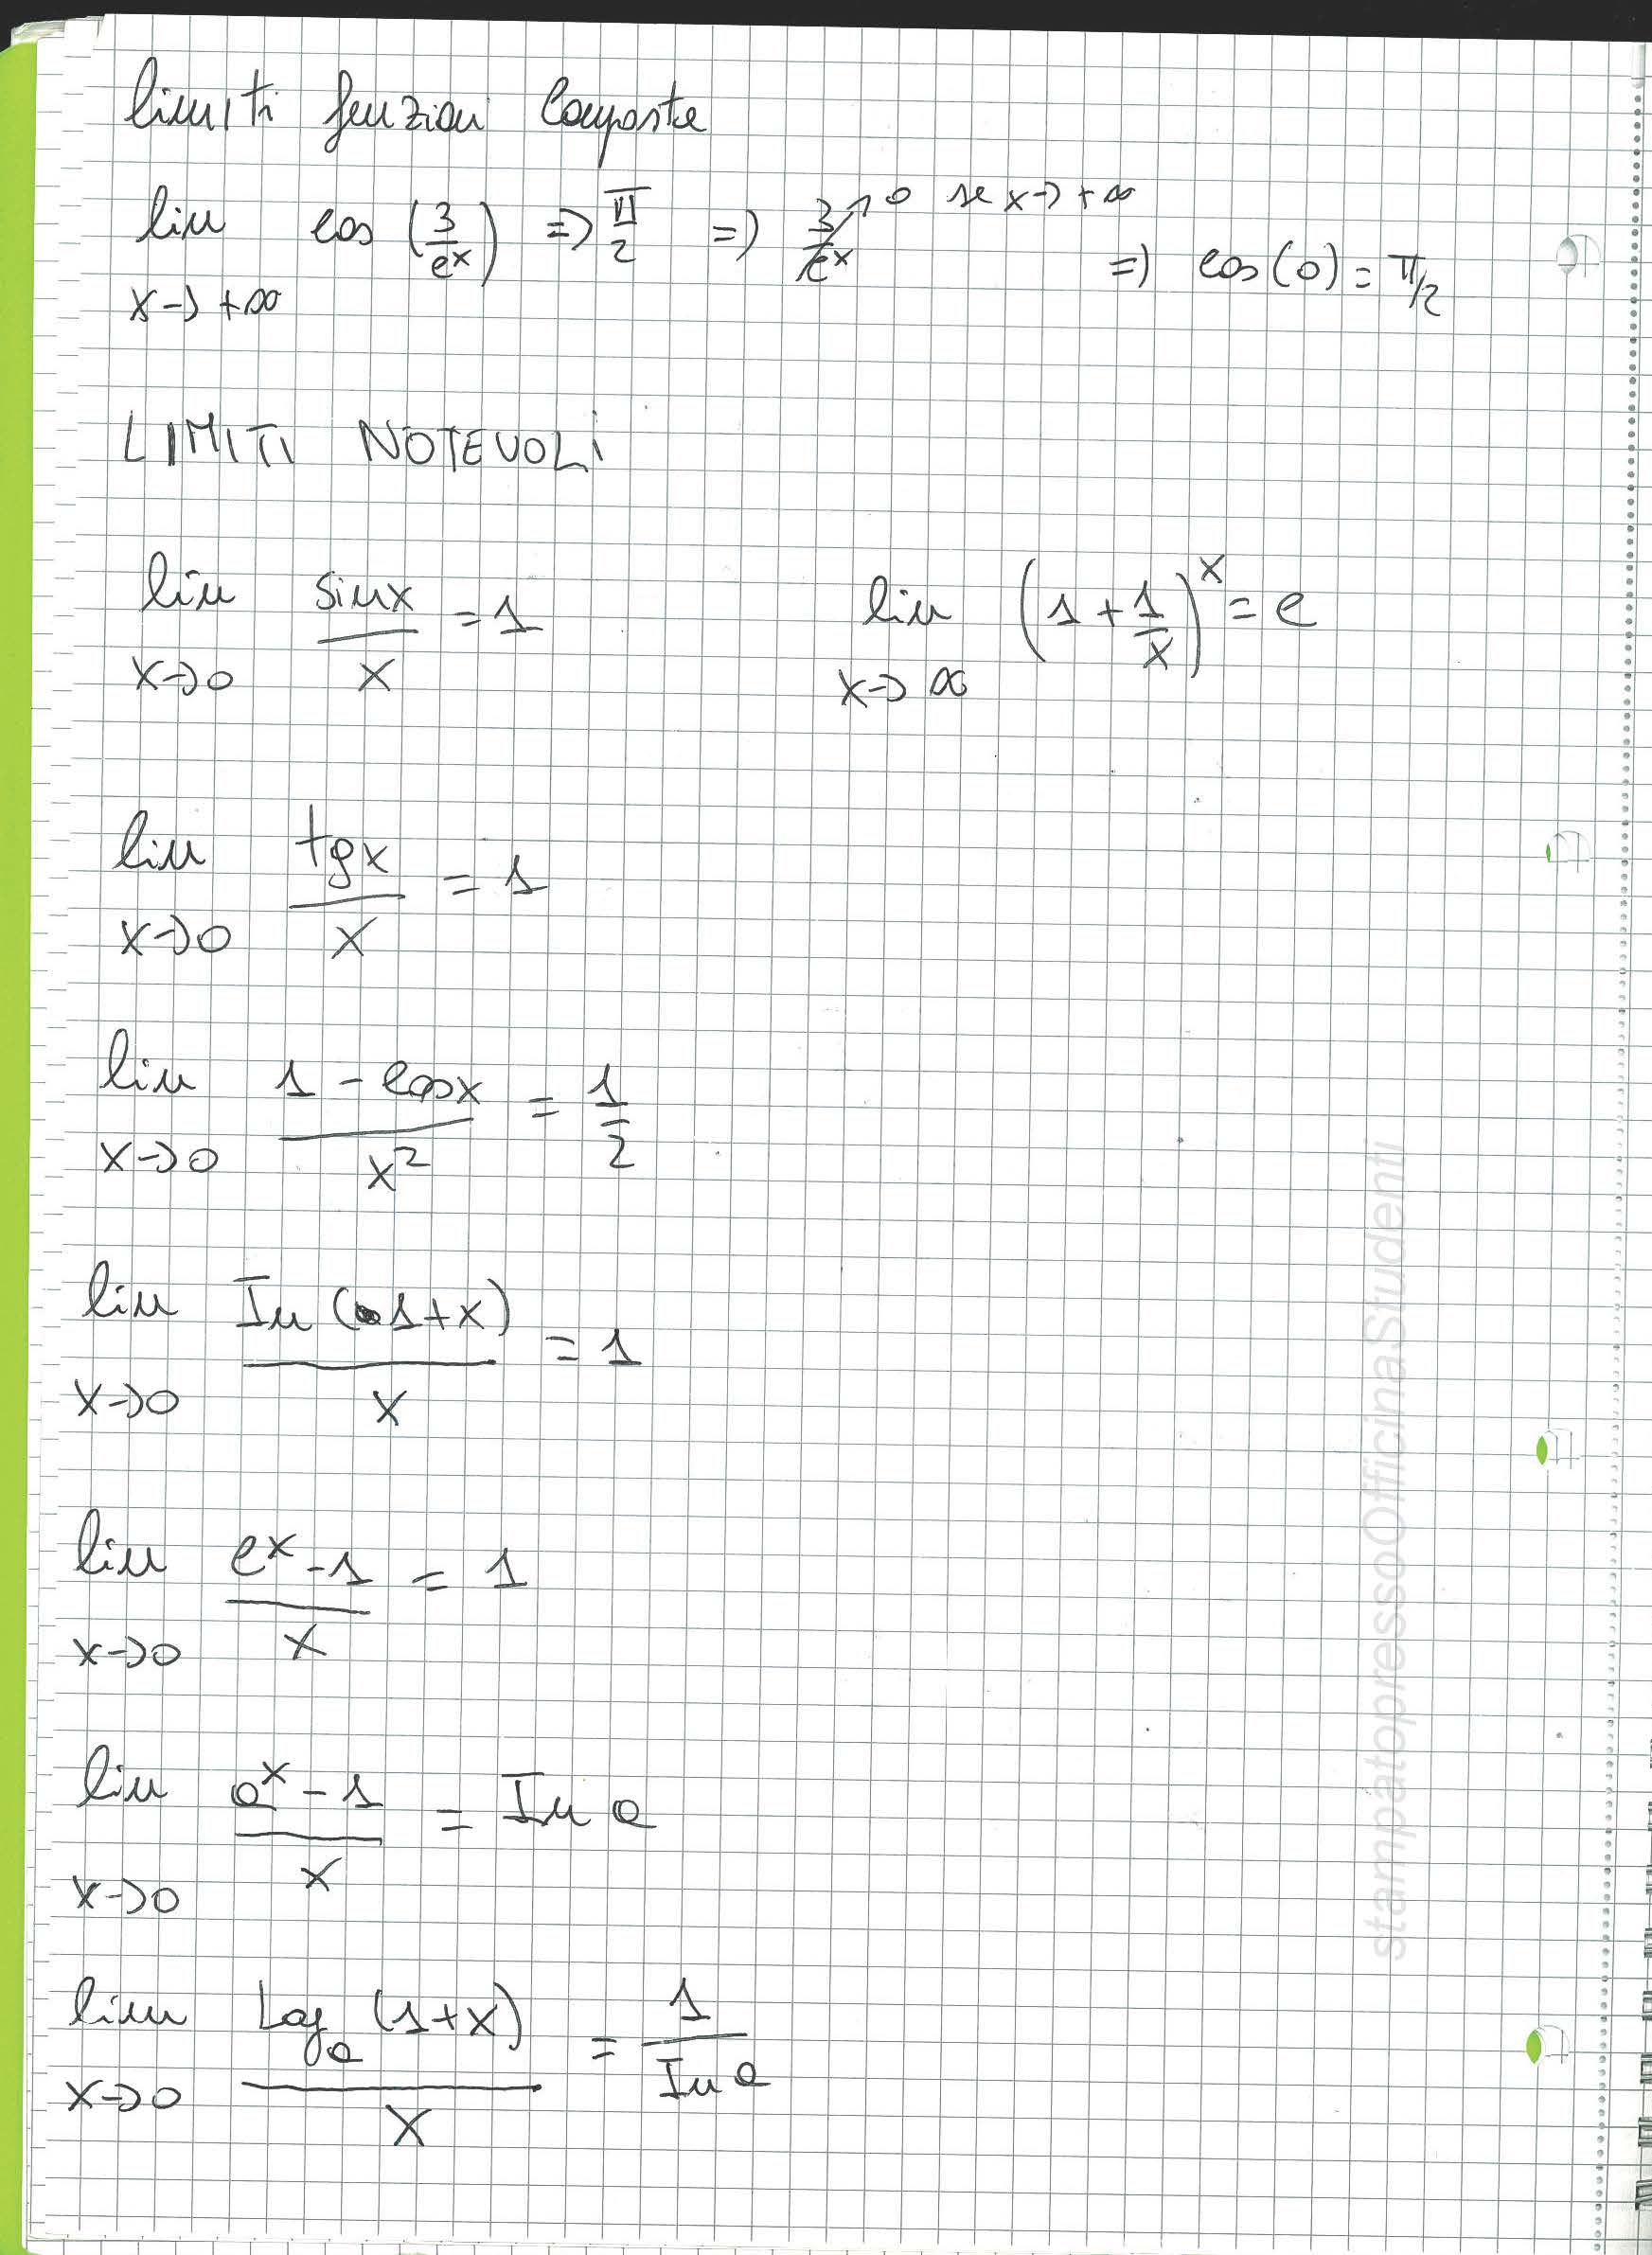 limiti funzioni composte
lim x→+∞ cos (3/e^x) => π/2 => 3/e^x ↗ 0 se x→+∞ => cos(0) = π/2
LIMITI NOTEVOLI
lim x→0 sinx/x = 1
lim x→∞ (1 + 1/x)^x = e
lim x→0 tgx/x = 1
lim x→0 1 - cosx/x² = 1/2
lim x→0 In (1+x)/x = 1
lim x→0 e^x - 1/x = 1
lim x→0 a^x - 1/x = In a
lim x→0 Log_a (1+x)/x = 1/In a
stampatopressoOfficinaStudenti